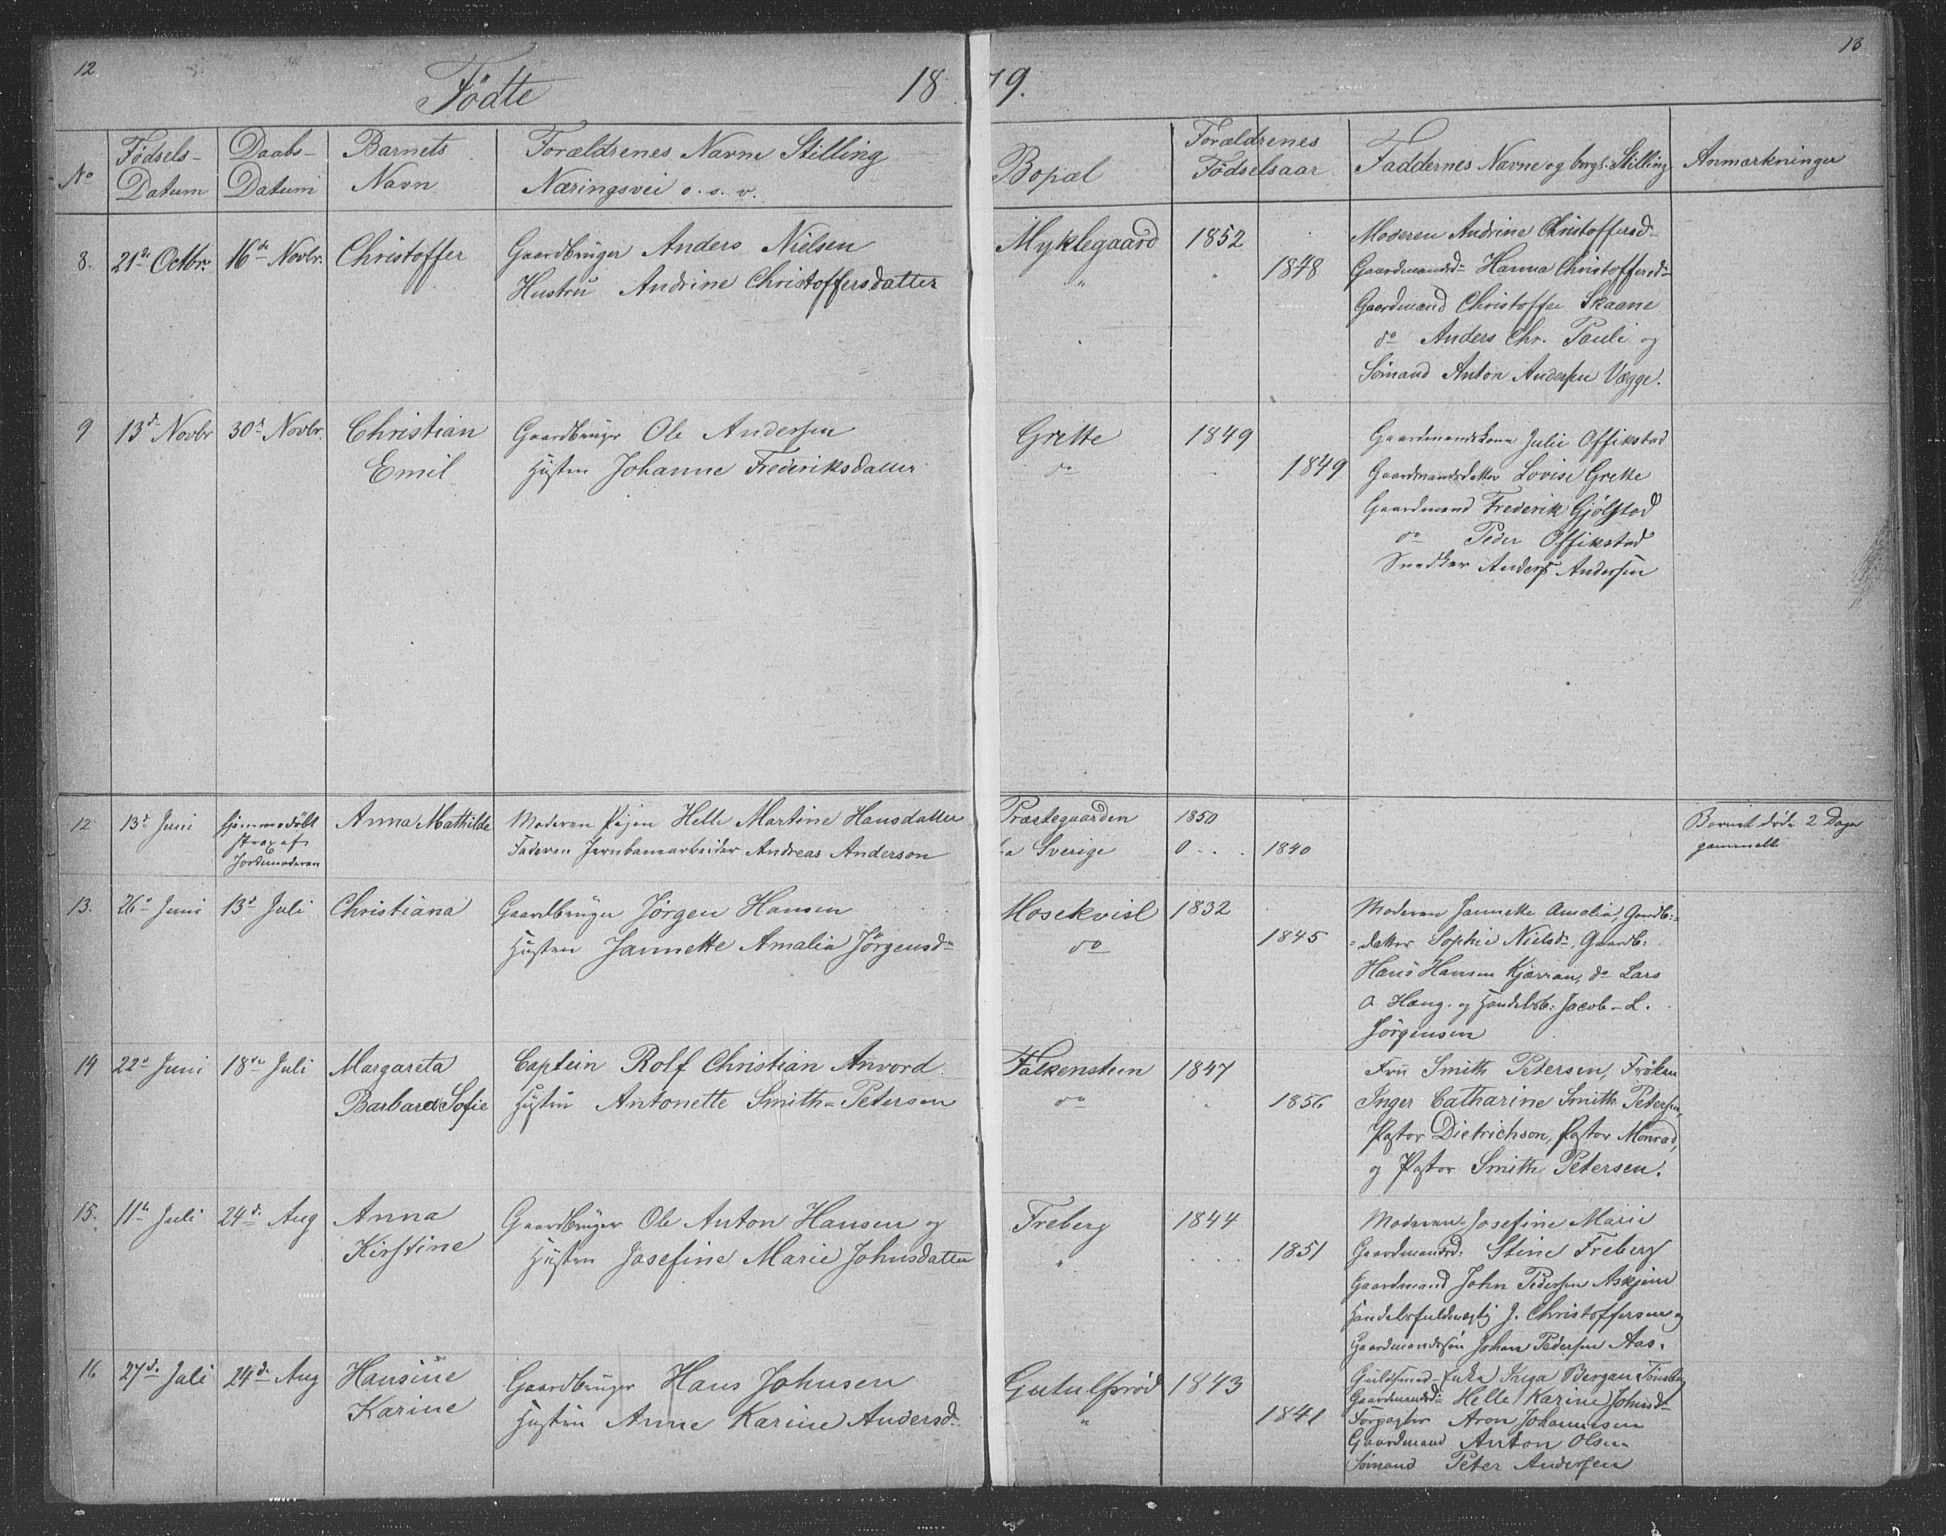 12
13
Fødte 1879.
No
Fødsels-
Datum
Daabs-
Datum
Barnets
Navn
Forældrenes Navne Stilling
Næringsvei o. s. v.
Bopæl
Forældrenes
Fødselsaar
Faddernes Navne og borgl. Stilling
Anmærkninger
8. 21de Octbr. 16de Novbr. Christoffer Gaardbruger Anders Nielsen Myklegaard 1852
Hustru Andrine Christoffersdatter " 1848
Moderen Andrine Christoffersd-
Gaardmandsd- Hanna Christoffersd-
Gaardmand Christoffer Skaane
do Anders Chr. Pauli og
Sømand Anton Andersen Vægge.
9 13d Novbr 30d Novbr. Christian Gaardbruger Ole Andersen Grette 1849
Emil Hustru Johanne Frederiksdatter do 1849
Gaardmandskone Julie Offikstad
Gaardmandsdatter Lovise Grette
Gaardmand Frederik Gjølstad
do Peder Offikstad
Snedker Anders Andersen
12 13d Juni hjemmedøbt Anna Mathilde Moderen Pigen Helle Martine Hansdatter Præstegaarden 1850
strax af
Jordemoderen
Faderen Jernbanearbeider Andreas Anderson Sverige 1840
Barnet døde 2 Dage
gammelt
13. 26d Juni 13d Juli Christiana Gaardbruger Jørgen Hansen Mosekvisl 1832
Hustru Jannette Amalia Jørgensd- do 1845
Moderen Jannette Amalia, Gaardb:-
datter Sophie Nielsd-, Gaardb:
Hans Hansen Kjærran, do Lars
Haug. og Handelsb: Jacob L.
Jørgensen
14 22d Juni 18de Juli Margareta Captein Rolf Christian Anvord Falkensteen 1847
Barbara Sofie Hustru Antonette Smith-Petersen do 1856
Fru Smith Petersen, Frøken
Inger Catharine Smith Petersen,
Pastor Dietrichson, Pastor Monrad,
og Pastor Smith Petersen.
15. 11te Juli 24d Aug Anna Gaardbruger Ole Anton Hansen og Freberg 1844
Kirstine Hustru Josefine Marie Johnsdatter " 1851
Moderen Josefine Marie
Gaardmandsd: Stine Freberg
Gaardmand John Pedersen Askjem
Handelsfuldmægtig J. Christoffersen og
Gaardmandssøn Johan Pedersen Aas.
16 27d. Juli 24d. Aug Hansine Gaardbruger Hans Johnsen Gutulfsrød 1843
Karine Hustru Anne Karine Andersd- " 1841
Guldsmed-Enke Inga Bergan Tønsberg
Gaardmandsd- Helle Karine Johnsd-
Forpagter Aron Johannesen
Gaardmand Anton Olsen
Sømand Peter Andersen